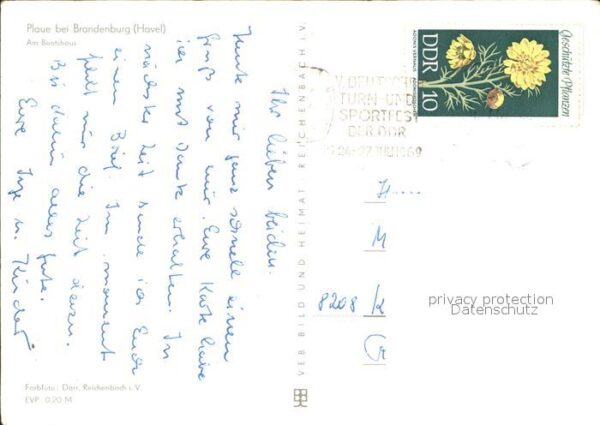 Plaue bei Brandenburg (Havel)
Am Bootshaus
Ihr lieben beiden.
Heute nur ganz schnell einen
Gruß von mir. Eure Karte habe
ich mit Dank erhalten. In
nächster Zeit sende ich Euch
einen Brief. Im moment
fehlt mir die Zeit dazu.
Bis dahin alles Gute.
Eure Inge u. Kinder
Farbfoto: Darr, Reichenbach i. V.
EVP 0,20 M
VEB BILD UND HEIMAT REICHENBACH I.V.
V. DEUTSCHES
TURN- UND
SPORTFEST
DER DDR
24.-27. JULI 1969
DDR
10
Geschützte Pflanzen
ADONIS VERNALIS
H
M
8208 K
G
privacy protection
Datenschutz